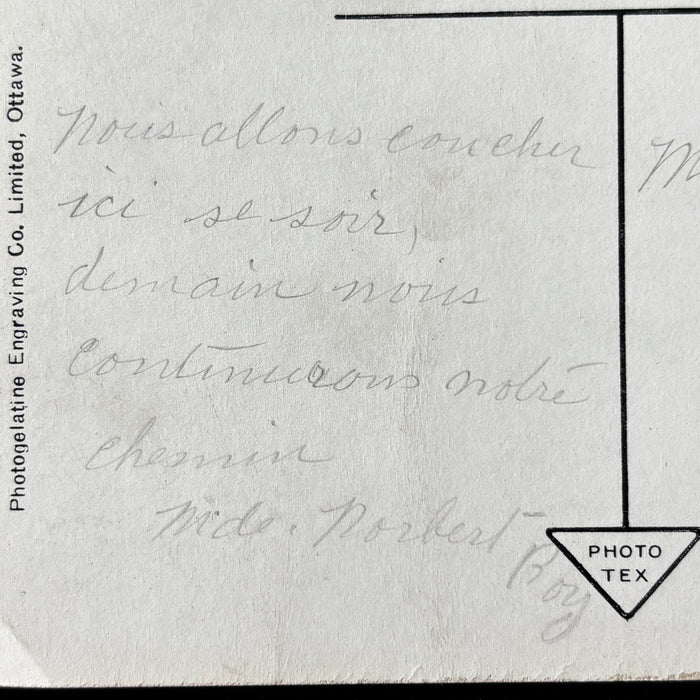 Photogelatine Engraving Co. Limited, Ottawa.
Nous allons coucher
ici se soir,
demain nous
continurons notre
chemin
Mde. Norbert
Roy
M
PHOTO
TEX